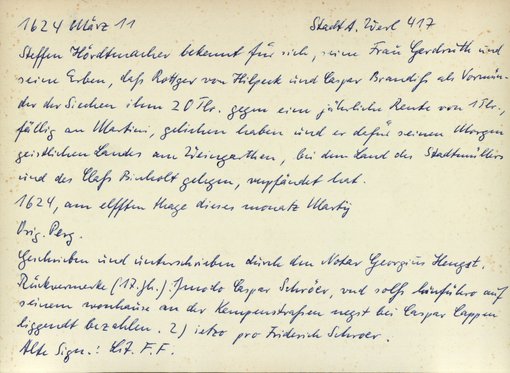 1624 März 11 Stadt A. Werl 417
Steffen Hördtmacher bekennt für sich, seine Frau Gerdruth und
seine Erben, daß Rottger von Hilpeck und Caspar Brandiß als Vormün-
der der Siechen ihm 20 Tlr. gegen eine jährliche Rente von 1 Tlr.,
fällig an Martini, geliehen haben und er dafür seinen Morgen
geistlichen Landes am Weingarthen, bei dem Land des Stadtmüllers
und des Claß Bucholt gelegen, verpfändet hat.
1624, am elfften thage dieses monatz Martij
Orig. Perg.
Geschrieben und unterschrieben durch den Notar Georgius Hengst.
Rückvermerke (17. Jh.). 1) modo Caspar Schröer, vnd solß hinführo auf
seinem wonhause an der Kempenstraßen negst bei Caspar Cappen
liggendt bezahlen. 2) ietzo pro Friderich Schroer.
Alte Sign.: Lit. F. F.